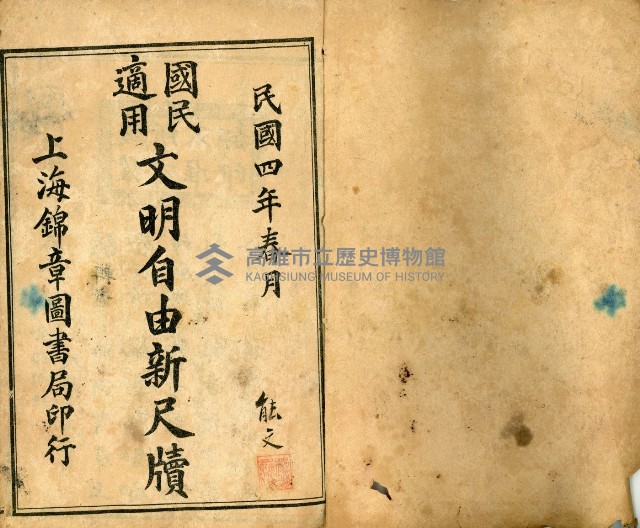 民國四年春月
能文
國民
適用
文明自由新尺牘
上海錦章圖書局印行
高雄市立歷史博物館
KAOHSIUNG MUSEUM OF HISTORY